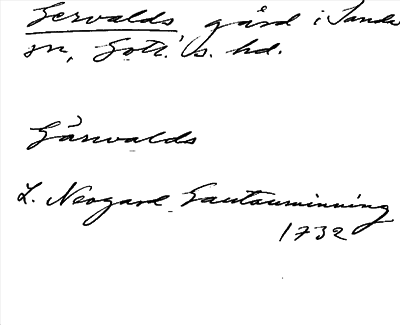 Gervalds gård i Sanda
sn, Gotl. s. hd.
Gärvalds
L. Neogard Gautauminning
1732